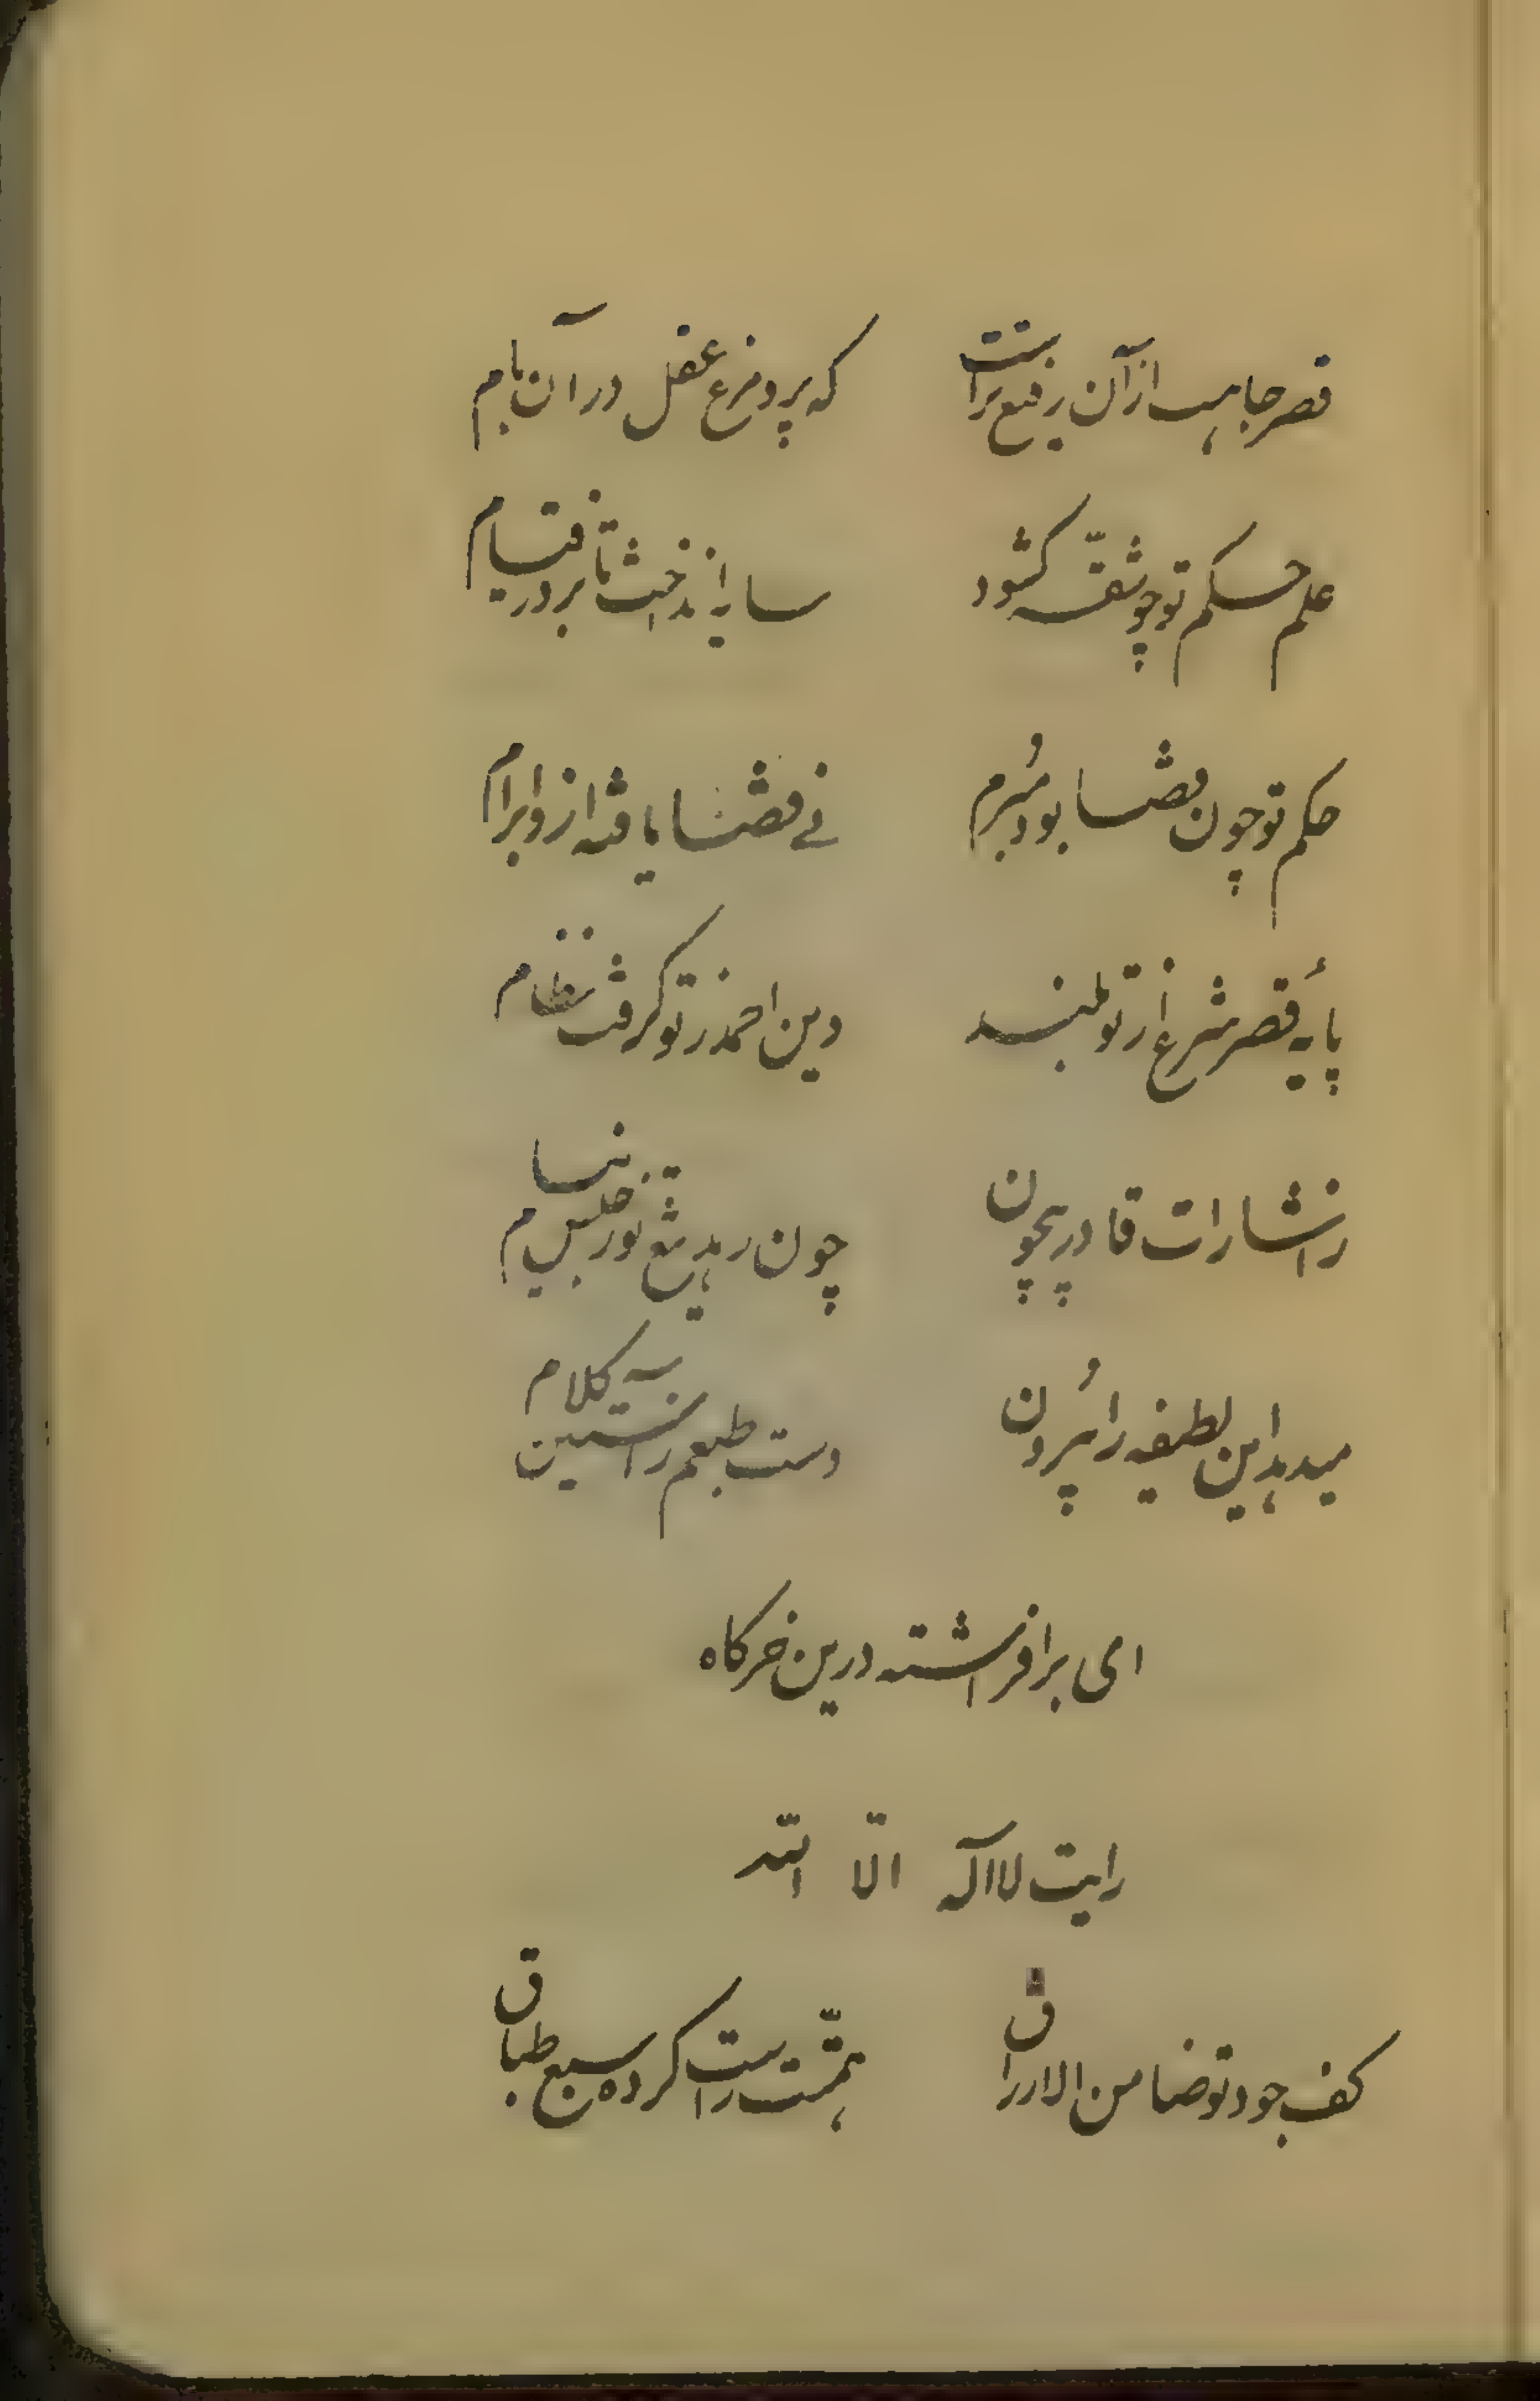 قصر جاهت از آن رفیع‌تر است که پرد مرغ عقل در آن بام
علم حکم تو چو شقّه کشود سایه انداخت تا بروز قیام
حکم تو چون قضا بود مُبرم نے قضا یافته ازو ابرام
پایهٔ قصر شرع از تو بلند دین احمد ز تو گرفت نظام
ز اشارات قادر بیچون چون رهد تیغ تو ز حبس نیام
میدهد این لطیفه را بُیرون دست طبعم ز آستین کلام
ای برافراشته درین خرکاه
رایت لا اله الّا الله
کف جود تو ضامن الارزاق همّتت راست کرده سبع طباق